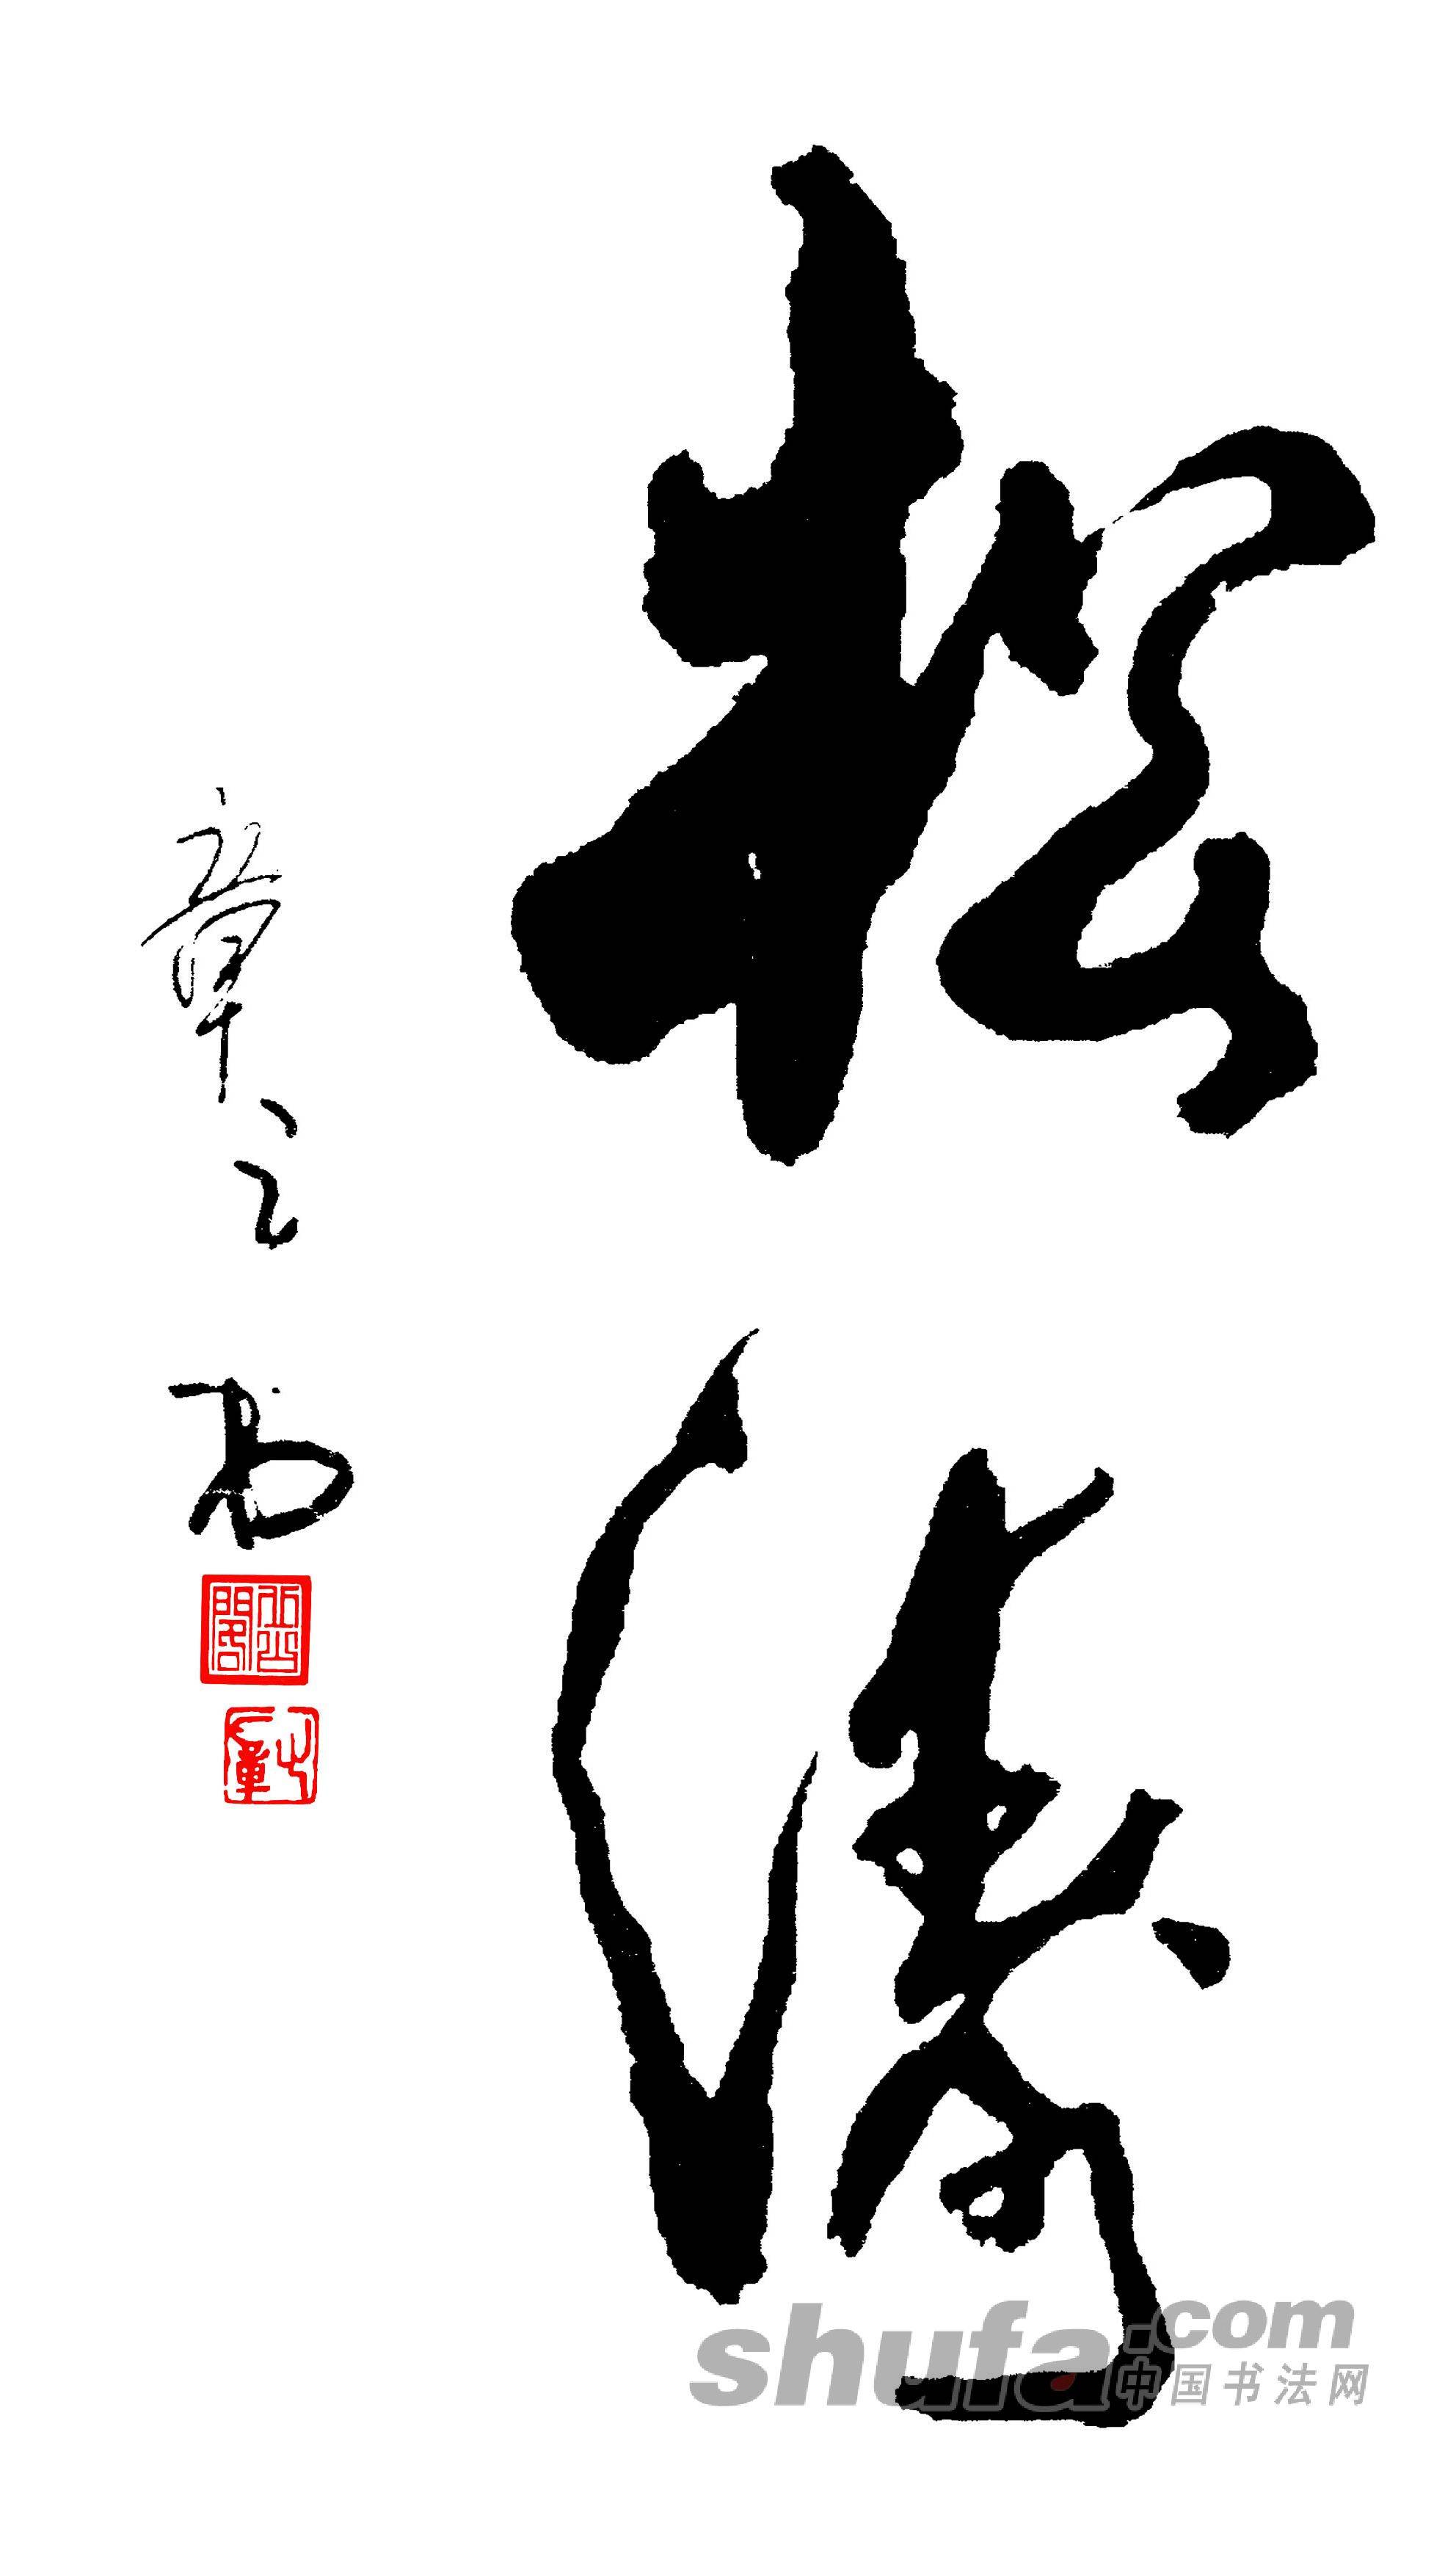 松涛
章之书
shufa.com
中国书法网